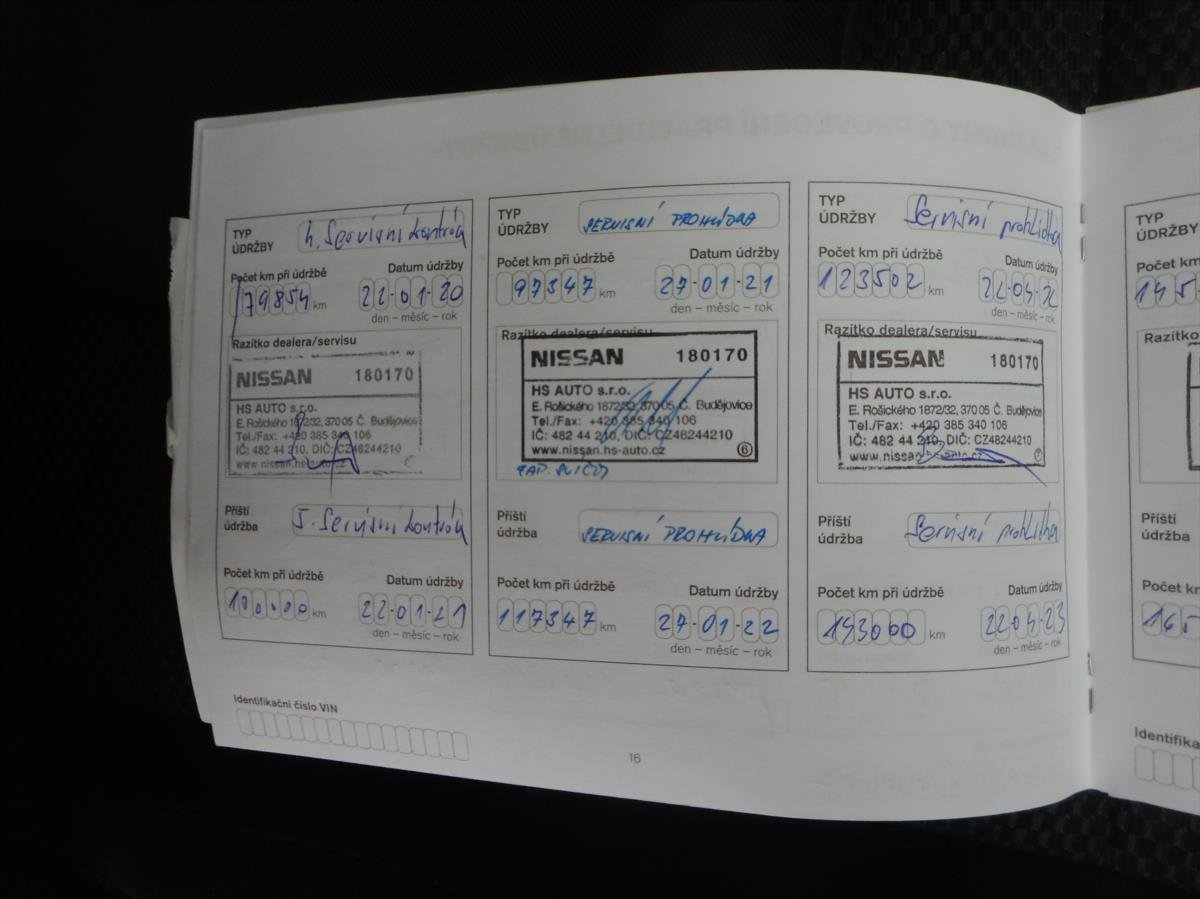 TYP
ÚDRŽBY
4. Servisní kontrola
Počet km při údržbě
Datum údržby
79854 km
22-01-20
den – měsíc – rok
Razítko dealera/servisu
NISSAN 180170
HS AUTO s.r.o.
E. Rošického 1872/32, 370 05 Č. Budějovice
Tel./Fax: +420 385 340 106
IČ: 482 44 210, DIČ: CZ48244210
www.nissan.hs-auto.cz
Příští
údržba
5. Servisní kontrola
Počet km při údržbě
Datum údržby
100.00 km
22-01-21
den – měsíc – rok
TYP
ÚDRŽBY
SERVISNÍ PROHLÍDKA
Počet km při údržbě
Datum údržby
97347 km
27-01-21
den – měsíc – rok
Razítko dealera/servisu
NISSAN 180170
HS AUTO s.r.o.
E. Rošického 1872/32, 370 05 Č. Budějovice
Tel./Fax: +420 385 340 106
IČ: 482 44 210, DIČ: CZ48244210
www.nissan.hs-auto.cz 6
Příští
údržba
SERVISNÍ PROHLÍDKA
Počet km při údržbě
Datum údržby
117347 km
27-01-22
den – měsíc – rok
TYP
ÚDRŽBY
Servisní prohlídka
Počet km při údržbě
Datum údržby
123502 km
den – měsíc – rok
Razítko dealera/servisu
NISSAN 180170
HS AUTO s.r.o.
E. Rošického 1872/32, 370 05 Č. Budějovice
Tel./Fax: +420 385 340 106
IČ: 482 44 210, DIČ: CZ48244210
www.nissan.hs-auto.cz 7
Příští
údržba
Servisní prohlídka
Počet km při údržbě
Datum údržby
143000 km
den – měsíc – rok
Identifikační číslo VIN
16
TYP
ÚDRŽBY
Počet km
145
Razítko
Příští
údržba
Počet km
165
Identifika